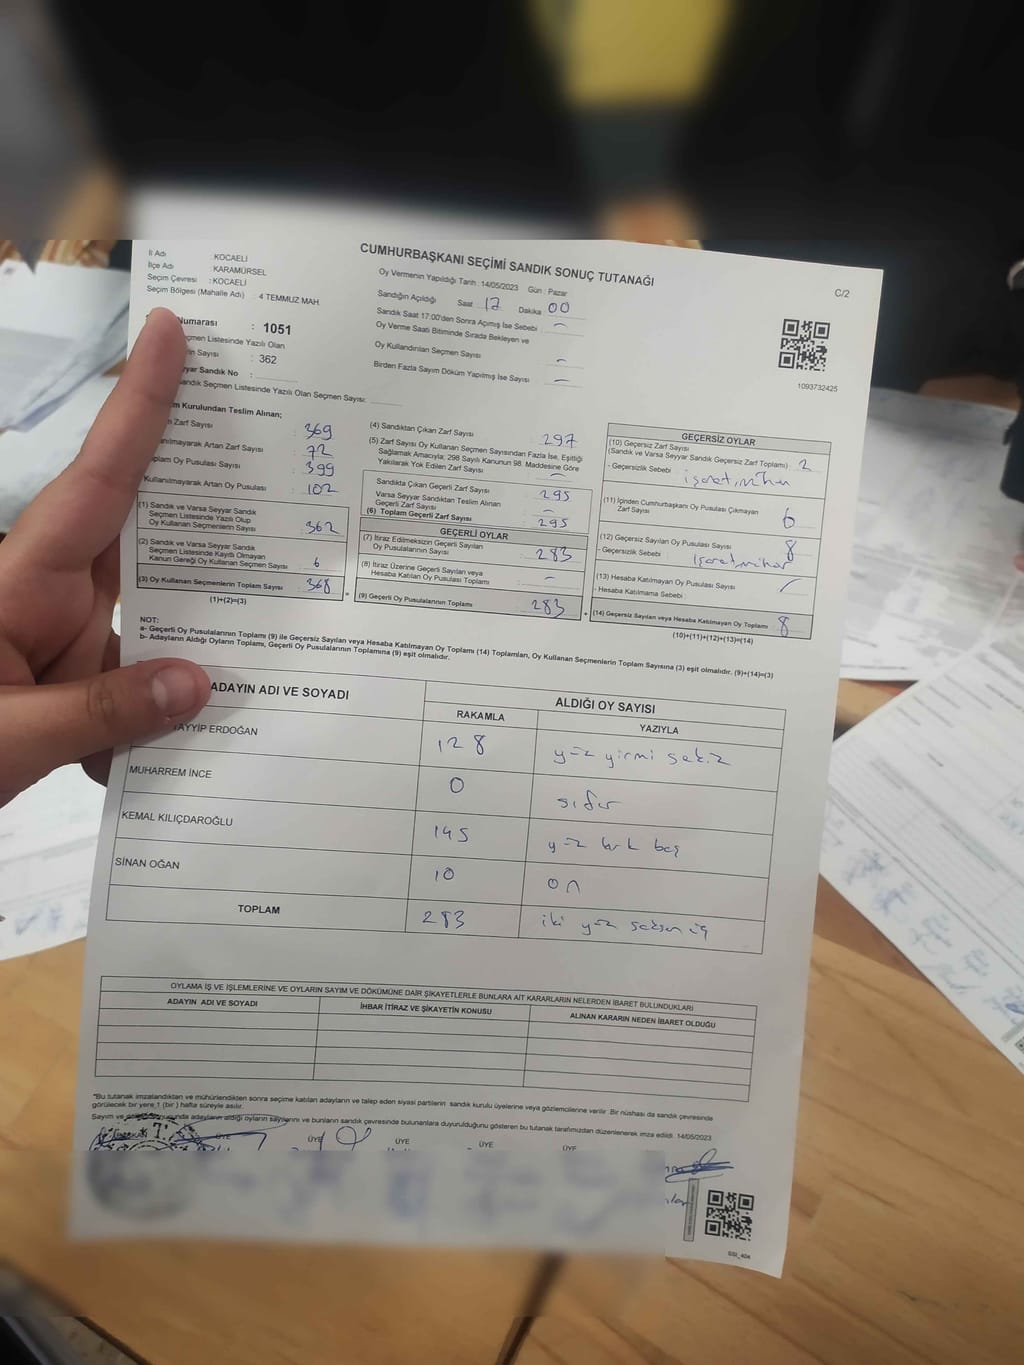 CUMHURBAŞKANI SEÇİMİ SANDIK SONUÇ TUTANAĞI
C/2
İl Adı : KOCAELİ
İlçe Adı : KARAMÜRSEL
Seçim Çevresi : KOCAELİ
Seçim Bölgesi (Mahalle Adı) : 4 TEMMUZ MAH.
Numarası : 1051
çmen Listesinde Yazılı Olan
n Sayısı : 362
yyar Sandık No :
andık Seçmen Listesinde Yazılı Olan Seçmen Sayısı:
Oy Vermenin Yapıldığı Tarih : 14/05/2023 Gün : Pazar
Sandığın Açıldığı Saat : 17 Dakika 00
Sandık Saat 17:00'den Sonra Açımış İse Sebebi : -
Oy Verme Saati Bitiminde Sırada Bekleyen ve
Oy Kullandırılan Seçmen Sayısı : -
Birden Fazla Sayım Döküm Yapılmış İse Sayısı : -
1093732425
m Kurulundan Teslim Alınan;
n Zarf Sayısı : 369
nılmayarak Artan Zarf Sayısı : 72
oplam Oy Pusulası Sayısı : 399
Kullanılmayarak Artan Oy Pusulası : 102
(1) Sandık ve Varsa Seyyar Sandık
Seçmen Listesinde Yazılı Olup
Oy Kullanan Seçmenlerin Sayısı : 362
(2) Sandık ve Varsa Seyyar Sandık
Seçmen Listesinde Kayıtlı Olmayan
Kanun Gereği Oy Kullanan Seçmen Sayısı : 6
(3) Oy Kullanan Seçmenlerin Toplam Sayısı : 368
(1)+(2)=(3)
=
(4) Sandıktan Çıkan Zarf Sayısı : 297
(5) Zarf Sayısı Oy Kullanan Seçmen Sayısından Fazla İse, Eşitliği
Sağlamak Amacıyla; 298 Sayılı Kanunun 98. Maddesine Göre
Yakılarak Yok Edilen Zarf Sayısı : -
Sandıkta Çıkan Geçerli Zarf Sayısı : 295
Varsa Seyyar Sandıktan Teslim Alınan
Geçerli Zarf Sayısı : -
(6) Toplam Geçerli Zarf Sayısı : 295
GEÇERLİ OYLAR
(7) İtiraz Edilmeksizin Geçerli Sayılan
Oy Pusulalarının Sayısı : 283
(8) İtiraz Üzerine Geçerli Sayılan veya
Hesaba Katılan Oy Pusulası Toplamı : -
(9) Geçerli Oy Pusulalarının Toplamı : 283
+
GEÇERSİZ OYLAR
(10) Geçersiz Zarf Sayısı
(Sandık ve Varsa Seyyar Sandık Geçersiz Zarf Toplamı) : 2
- Geçersizlik Sebebi : işaret, mühür
(11) İçinden Cumhurbaşkanı Oy Pusulası Çıkmayan
Zarf Sayısı : 6
(12) Geçersiz Sayılan Oy Pusulası Sayısı : 8
- Geçersizlik Sebebi : işaret, mühür
(13) Hesaba Katılmayan Oy Pusulası Sayısı : /
- Hesaba Katılmama Sebebi :
(14) Geçersiz Sayılan veya Hesaba Katılmayan Oy Toplamı : 8
(10)+(11)+(12)+(13)=(14)
NOT:
a- Geçerli Oy Pusulalarının Toplamı (9) ile Geçersiz Sayılan veya Hesaba Katılmayan Oy Toplamı (14) Toplamları, Oy Kullanan Seçmenlerin Toplam Sayısına (3) eşit olmalıdır. (9)+(14)=(3)
b- Adayların Aldığı Oyların Toplamı, Geçerli Oy Pusulalarının Toplamına (9) eşit olmalıdır.
ADAYIN ADI VE SOYADI
ALDIĞI OY SAYISI
RAKAMLA YAZIYLA
TAYYİP ERDOĞAN 128 yüz yirmi sekiz
MUHARREM İNCE 0 sıfır
KEMAL KILIÇDAROĞLU 145 yüz kırk beş
SİNAN OĞAN 10 on
TOPLAM 283 iki yüz seksen üç
OYLAMA İŞ VE İŞLEMLERİNE VE OYLARIN SAYIM VE DÖKÜMÜNE DAİR ŞİKAYETLERLE BUNLARA AİT KARARLARIN NELERDEN İBARET BULUNDUKLARI
ADAYIN ADI VE SOYADI İHBAR İTİRAZ VE ŞİKAYETİN KONUSU ALINAN KARARIN NEDEN İBARET OLDUĞU
*Bu tutanak imzalandıktan ve mühürlendikten sonra seçime katılan adayların ve talep eden siyasi partilerin sandık kurulu üyelerine veya gözlemcilerine verilir. Bir nüshası da sandık çevresinde
görülecek bir yere 1 (bir) hafta süreyle asılır.
Sayım ve sonunda adayların aldığı oyların sayılarını ve bunların sandık çevresinde bulunanlara duyurulduğunu gösteren bu tutanak tarafımızdan düzenlenerek imza edildi. 14/05/2023
BAŞKAN ÜYE ÜYE ÜYE ÜYE ÜYE
SSİ_404